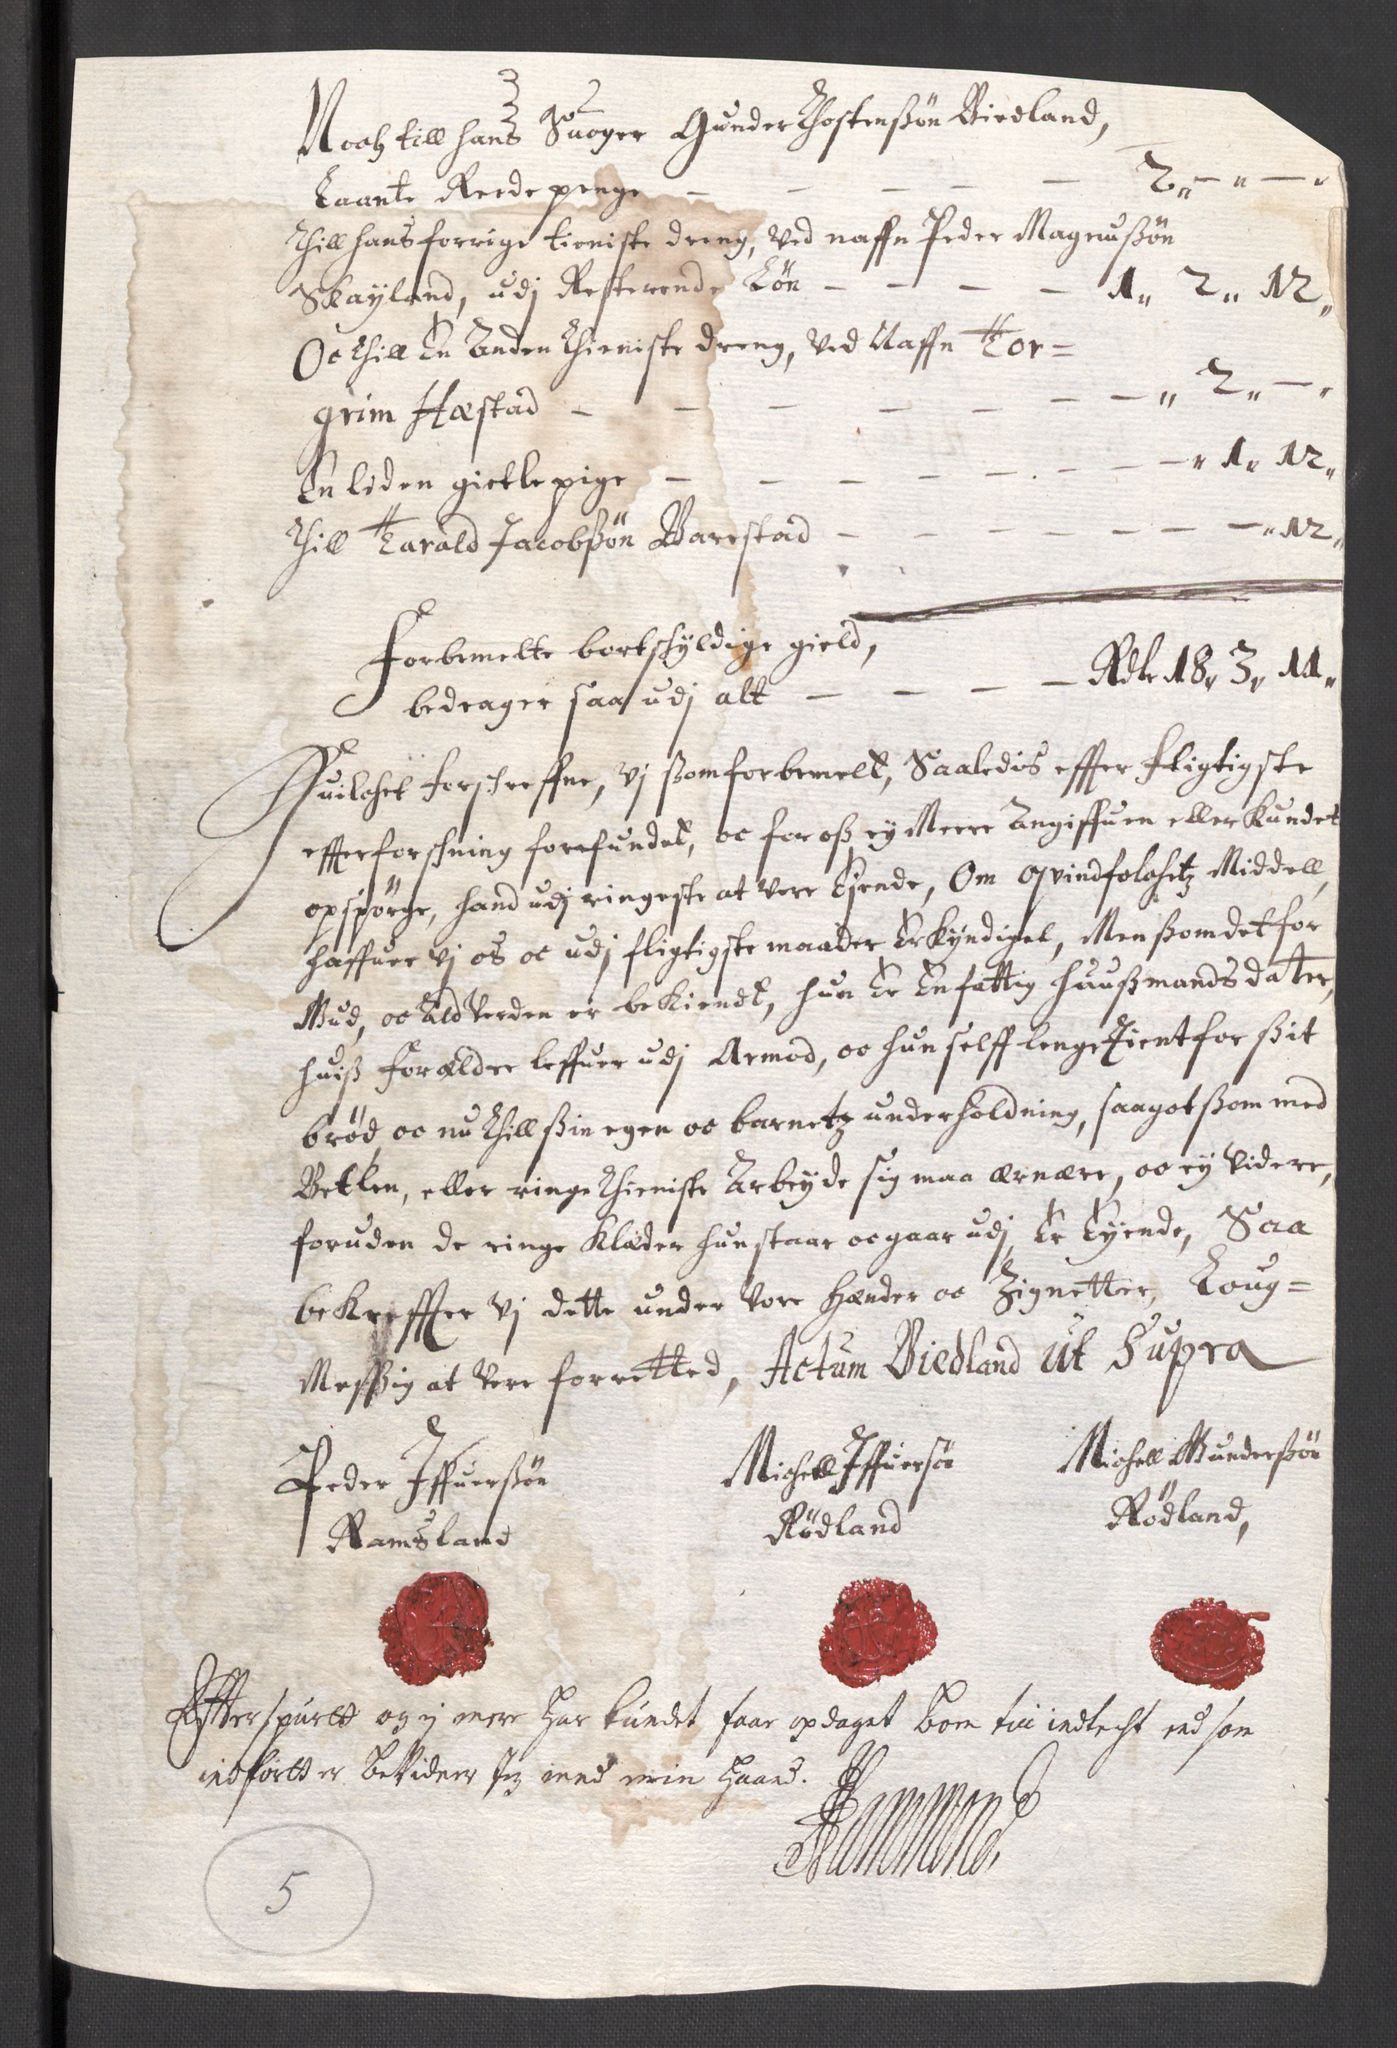 Noch till hans Suoger Gunder Thostensßøn Birdland,
Laante Reede penge — — — — — 2„ — „ — „
Thill hans forrige tieniste dreng, ved naffn Peder Magnußøn
Skayland, udj Resterende Løn — — — — 1„ 2„ 12„
Oc thill En Anden thieniste dreng, ved Naffn Tor=
grim Hæstad — — — — — — — „ 2„ — „
En liden gietle pige — — — — — — — „ 1„ 12„
Thill Tarald Jacobßøn Barstad — — — — — — — „ 12„
Forbemelte bortskyldige gield,
bedrager saa udj alt — — — — Rdlr 18„ 3„ 11„
Huilchet forschreffne, vj ßom forbemelt, Saaledis effter fligtigste
effterforschning forefundet, oc for oß ey Meere Angiffuen eller kundet
opspørge, hand udj ringeste at vere Eyende, Om qvindfolchetz Middell,
haffuer vj os oc udj fligtigste maader Erkyndiget, Men ßom det for
Gud, oc Ald Verden er bekiendt, hun Er En fattig huußmands dater,
huiß forældre leffuer udj Armod, oc hun selff lenge tient for ßit
brød, oc nu thill ßin egen oc barnetz underholdning, saagot ßom med
Betlen, eller ringe thieniste Arbeyde sig maa ærnære, oc ey videre,
foruden de ringe Klæder hun staar oc gaar udj, Er Eyende, Saa
bekreffter vj dette under vore hænder oc Zignetter, Loug=
Messig at vere forretted, Actum Birdland Ut Supra
Peder Iffuerßøn Michell Iffuersøn Michell Gunderßøn
Ramsland Rødland Rødland,
Efterspurtt og ey mere har kundet faae opdaget som till indtecht end som
indførtt er bevidner Jeg med min haand.
Hammond
5